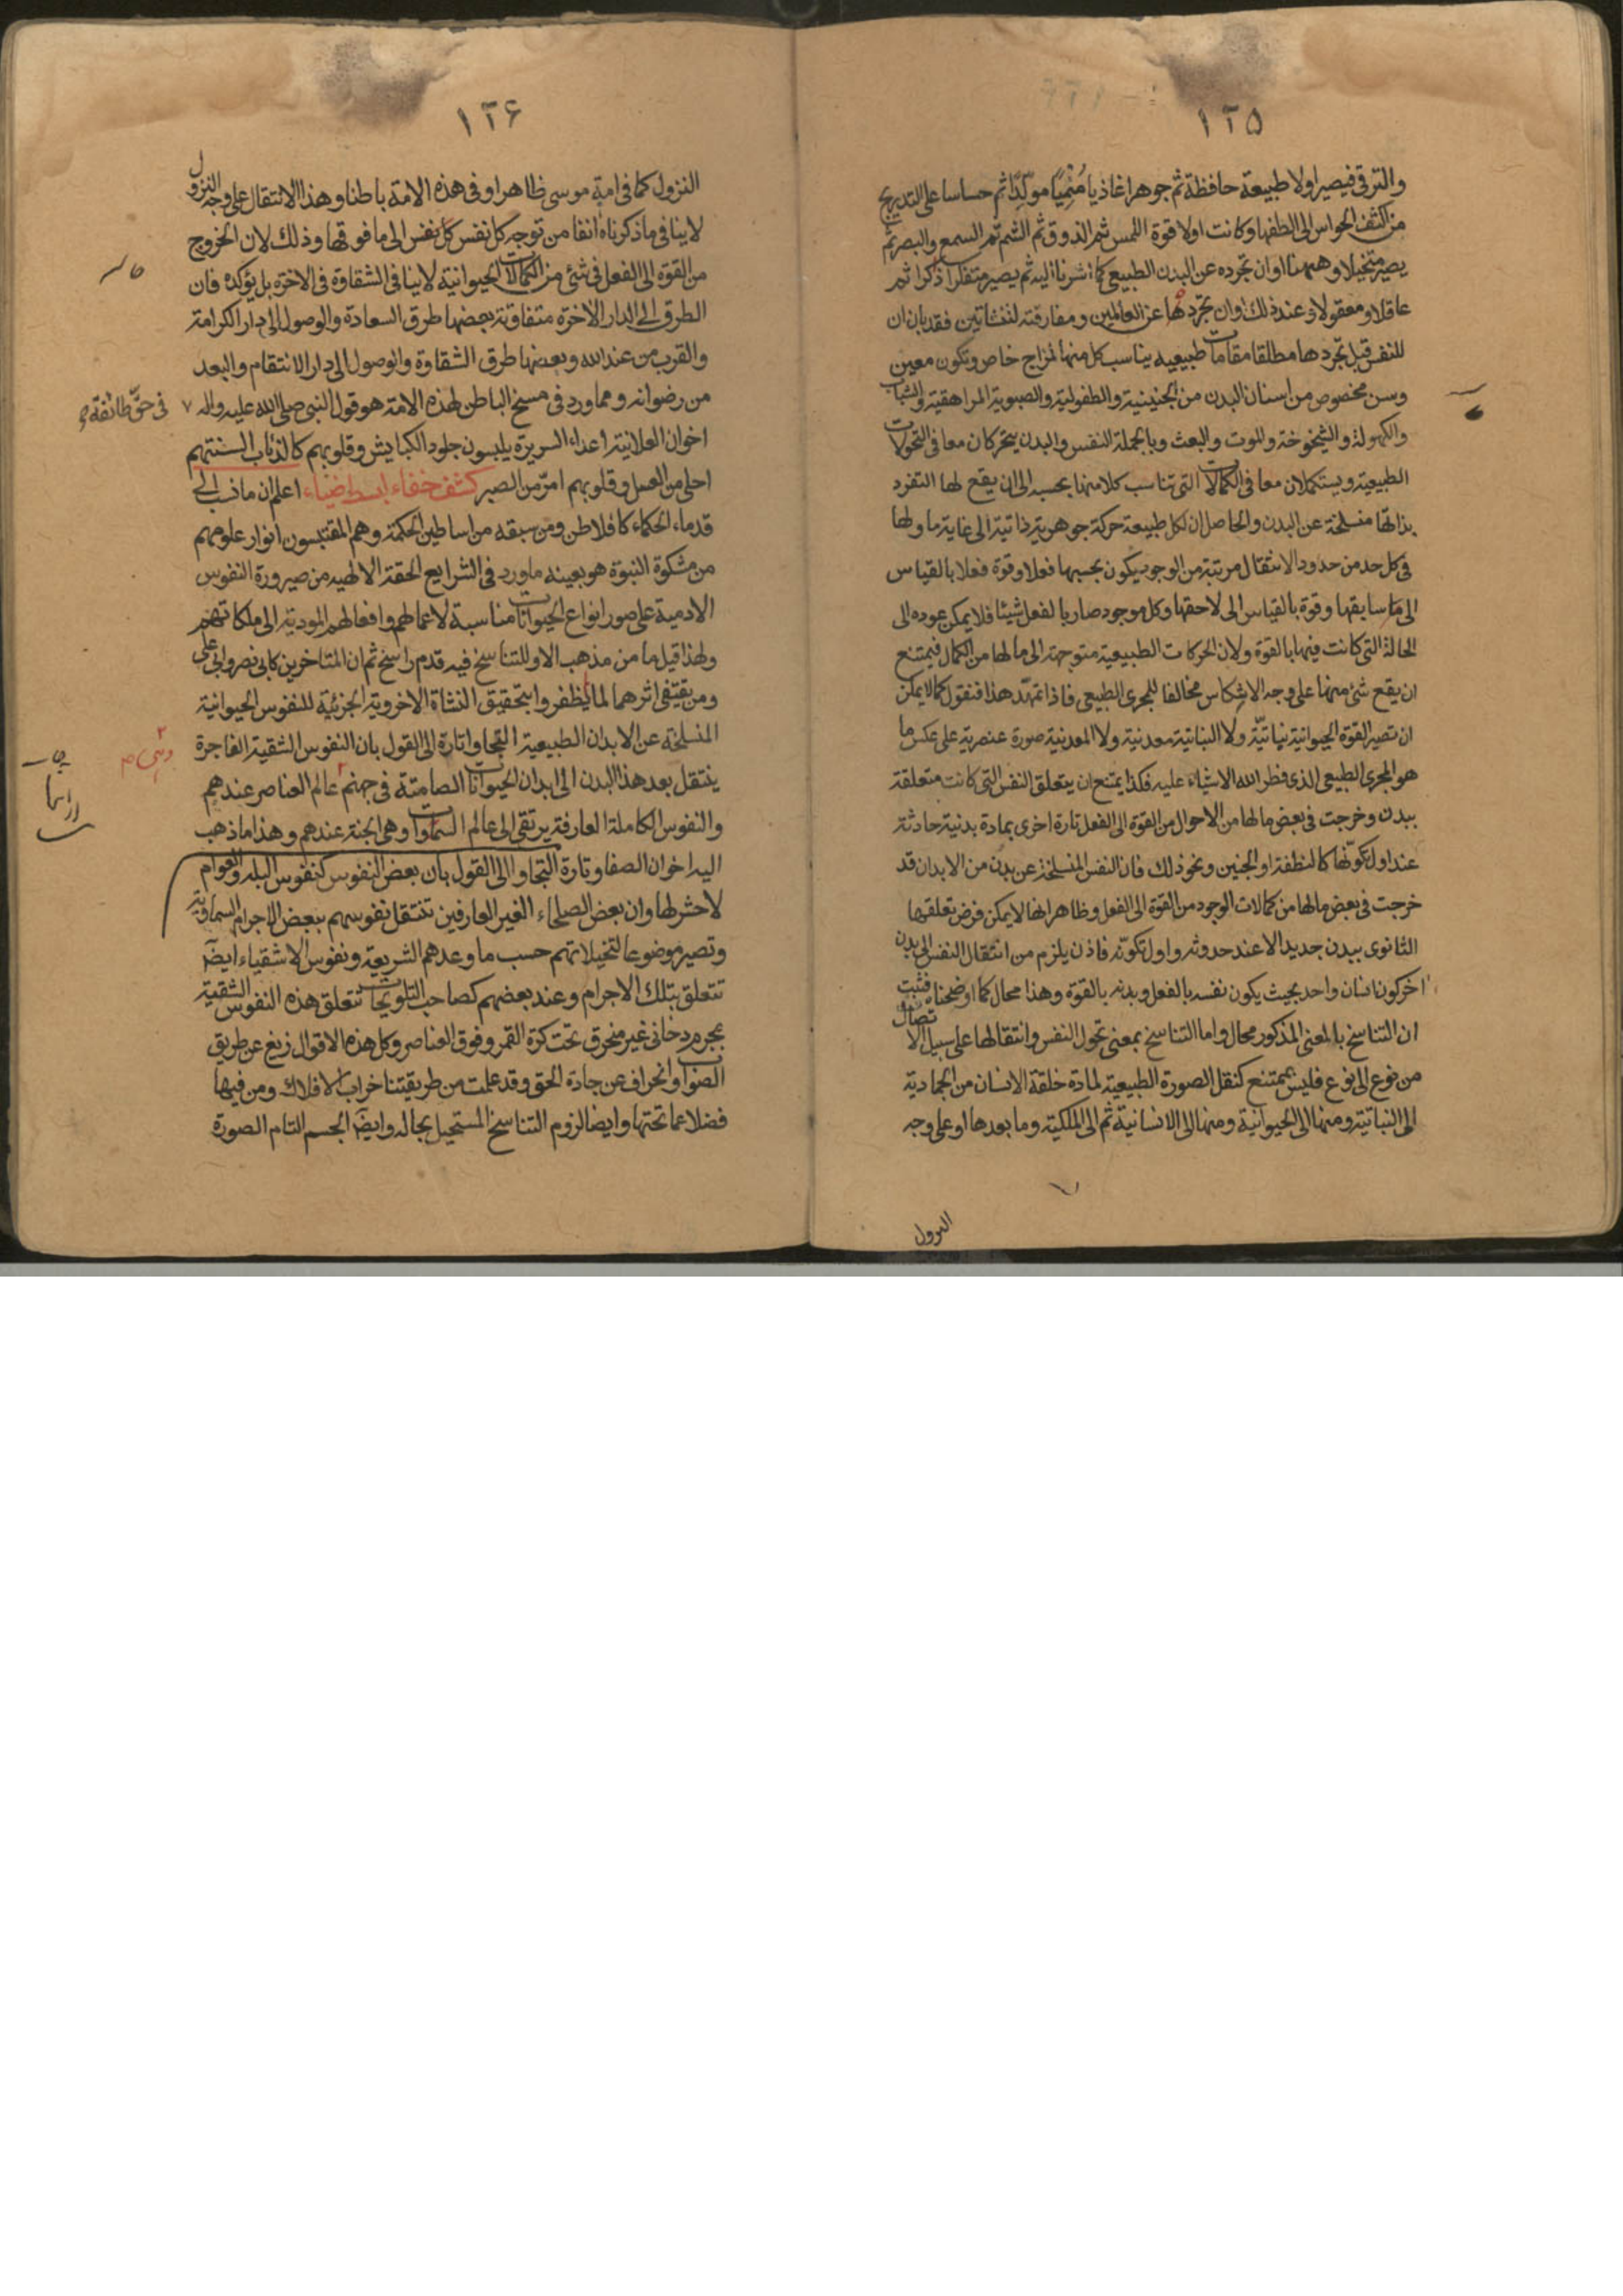 ١٢٥
والترقي فيصير اولا طبيعة حافظة ثم جوهرا غاذيا مُنْمِيًا مولّدًا ثم حساسا على التدريج
من اكثف الحواس الى الطفها وكانت اولا قوة اللمس ثم الذوق ثم الشم ثم السمع والبصر ثم
يصير متخيلا وههنا اوان تجرده عن البدن الطبيعي كما اشرنا اليه ثم يصير متفكرا ذاكرا ثم
عاقلا ومعقولا وعند ذلك اوان تجردها عن العالمين ومفارقته للنشاتين فقد بان ان
للنفس قبل تجردها مطلقا مقامات طبيعيه يناسب كل منها لمزاج خاص وتكون معين
وسن مخصوص من اسنان البدن من الجنينية والطفولية والصبوية المراهقية والشباب
والكهولة والشيخوخة والموت والبعث وبالجملة النفس والبدن يتحركان معا في التحولات
الطبيعية ويستكملان معا في الكمالات التي تناسب كلا منها بحسبه الى ان يقع لها التفرد
بذاتها منسلخة عن البدن والحاصل ان لكل طبيعة حركة جوهرية ذاتية الى غاية ما ولها
في كل حد من حدود الانتقال مرتبة من الوجود يكون بحسبها فعلا وقوة فعلا بالقياس
الى ما سابقها وقوة بالقياس الى لاحقها وكل موجود صار بالفعل شيئا فلا يمكن عوده الى
الحالة التي كانت فيها بالقوة ولان الحركات الطبيعية متوجهة الى ما لها من الكمال فيمتنع
ان يقع شئ منها على وجه الانتكاس مخالفا للمجرى الطبيعي فاذا تمهّد هذا فنقول كما لا يمكن
ان تصير القوة الحيوانية نباتيّة ولا النباتية معدنية ولا المعدنية صورة عنصرية على عكس ما
هو المجرى الطبيعي الذي فطر الله الاشياء عليه فكذا يمتنع ان يتعلق النفس التي كانت متعلقة
ببدن وخرجت في بعض ما لها من الاحوال من القوة الى الفعل تارة اخرى بمادة بدنية حادثة
عند اول تكوّنها كالنطفة او الجنين ونحو ذلك فان النفس المنسلخة عن بدن من الابدان قد
خرجت في بعض ما لها من كمالات الوجود من القوة الى الفعل وظاهر انها لا يمكن فرض تعلقها
الثانوى ببدن جديد الا عند حدوثه واول تكوّنه فاذن يلزم من انتقال النفس الى بدن
اخر كون انسان واحد بحيث يكون نفسه بالفعل وبدنه بالقوة وهذا محال كما اوضحناه فثبت
ان التناسخ بالمعنى المذكور محال واما التناسخ بمعنى تحول النفس وانتقالها على سبيل الاتصال
من نوع الى نوع فليس بممتنع كنقل الصورة الطبيعية لمادة خلقة الانسان من الجمادية
الى النباتية ومنها الى الحيوانية ومنها الى الانسانية ثم الى الملكية وما بعدها او على وجه
النزول
١٢۶
النزول كما في امة موسى ظاهرا وفي هذه الامة باطنا وهذا الانتقال على وجه النزول
لا ينافي ما ذكرناه آنفا من توجه كل نفس كل نفس الى ما فوقها وذلك لان الخروج
من القوة الى الفعل في شئ من الكمالات الحيوانية لا ينافي الشقاوة في الاخرة بل يؤكده فان
الطرق الى الدار الاخرة متفاوتة بعضها طرق السعادة والوصول الى دار الكرامة
والقرب من عند الله وبعضها طرق الشقاوة والوصول الى دار الانتقام والبعد
من رضوانه ومما ورد في مسخ الباطن لهذه الامة هو قول النبي صلى الله عليه واله ٧
في حقّ طائفة
اخوان العلانية اعداء السريرة يلبسون جلود الكبايش وقلوبهم كالذئاب السنتهم
احلى من العسل وقلوبهم امرّ من الصبر كشف خفاء لبسط ضياء اعلم ان ما نسب الى
قدماء الحكماء كافلاطن ومن سبقه من اساطين الحكمة وهم المقتبسون انوار علومهم
من مشكوة النبوة هو بعينه ماورد في الشرايع الحقة الالهيه من صيرورة النفوس
الادمية على صور انواع الحيوانات مناسبة لاعمالهم وافعالهم المودية الى ملكاتهم
ولهذا قيل ما من مذهب الا وللتناسخ فيه قدم راسخ ثم ان المتاخرين كابى نصر وابى على
ومن يقتفى اثرهما لما لم يظفروا بتحقيق النشاة الاخروية الجزئية للنفوس الحيوانية
المنسلخة عن الابدان الطبيعية التجاوا تارة الى القول بان النفوس الشقية الفاجرة
ينتقل بعد هذا البدن الى ابدان الحيوانات الصامتة في جهنم عالم العناصر عندهم
والنفوس الكاملة العارفة يرتقى الى عالم السماوات وهي الجنة عندهم وهذا ما ذهب
اليه اخوان الصفا وتارة التجاوا الى القول بان بعض النفوس كنفوس البله والعوام
لا حشر لها وان بعض الصلحاء الغير العارفين تنتقل نفوسهم ببعض الاجرام السماوية
وتصير موضوعا لتخيلاتهم حسب ما وعدهم الشريعة ونفوس الاشقياء ايضًا
تتعلق بتلك الاجرام وعند بعضهم كصاحب التلويحات تتعلق هذه النفوس الشقية
بجرم دخانى غير منخرق تحت كرة القمر وفوق العناصر وكل هذه الاقوال زيغ عن طريق
الصواب وانحراف عن جادة الحق وقد علمت من طريقتنا خراب الافلاك ومن فيها
فضلا عما تحتها وايضا لزوم التناسخ المستحيل بحاله وايضًا الجسم التام الصورة